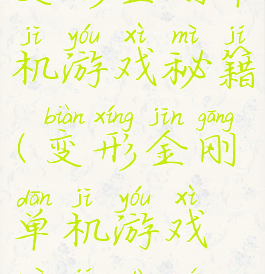 jī yóu xì mì jí
机游戏秘籍
biàn xíng jīn gāng
(变形金刚
dān jī yóu xì
单机游戏